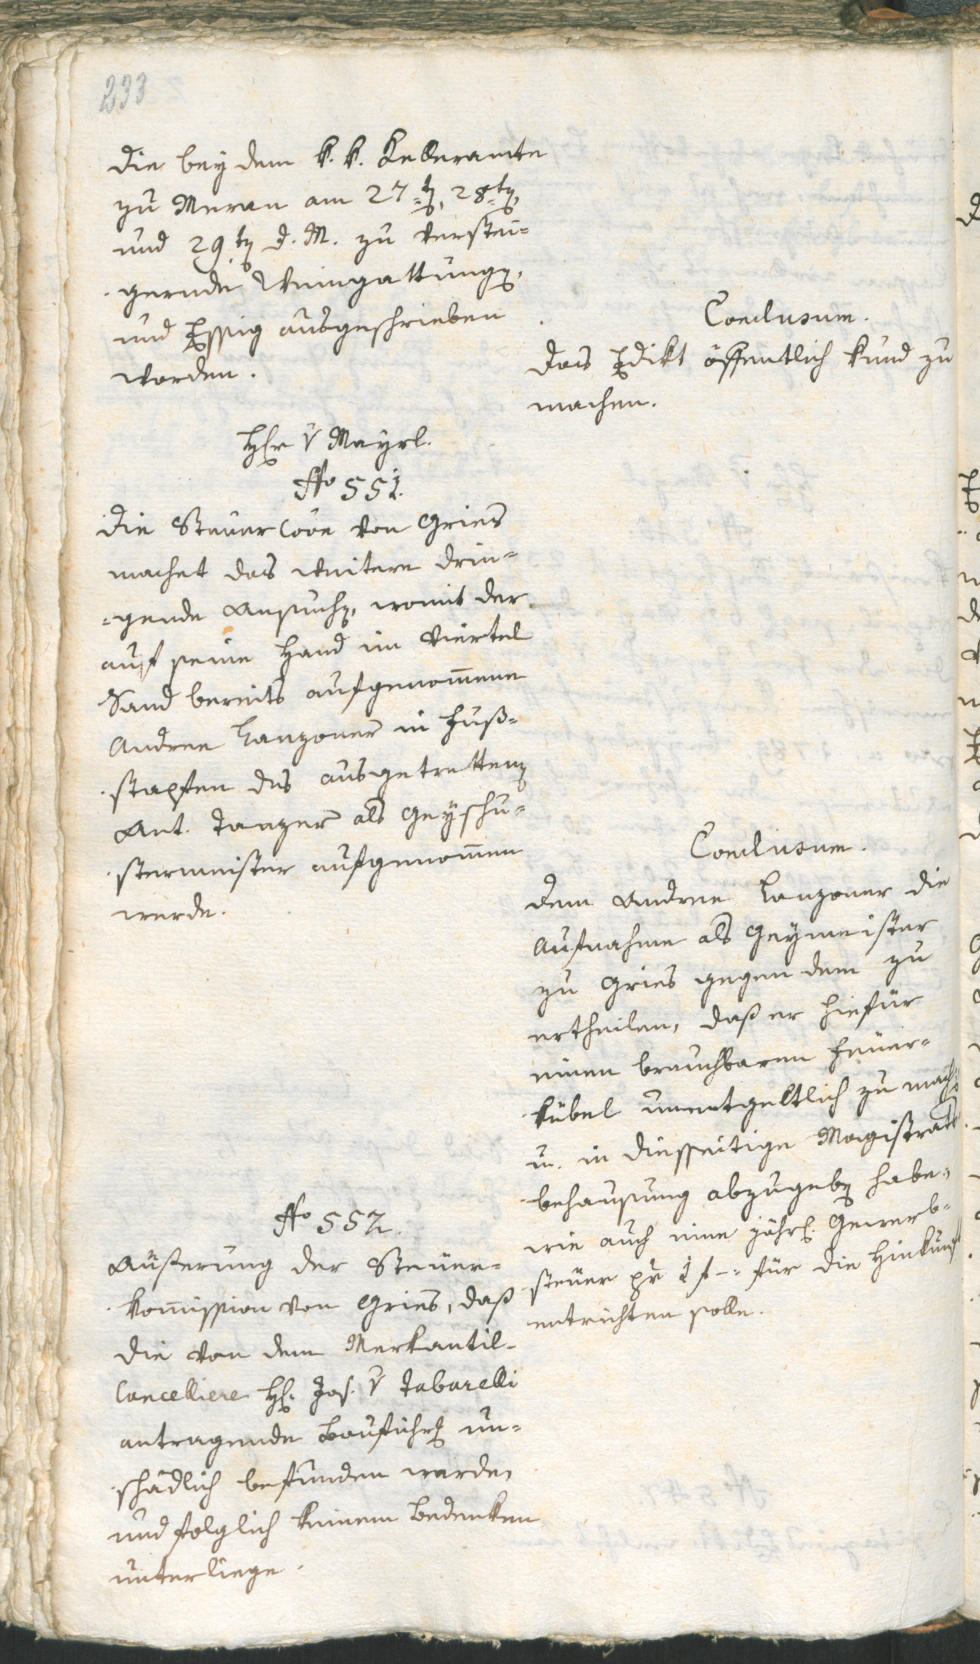 233
die bey dem k. k. Kelleramte
zu Meran am 27=tn, 28=tn,
und 29.tn d. M. zu verstei=
gernde Weingattungen,
und Essig ausgeschrieben
worden.
Conclusum.
das Edikt öffentlich kund zu
machen.
Hr v Mayrl.
No 551.
die Steuer Cõon von Gries
machet das weitere drin=
=gende Ansuchen, womit der
auf seine Hand im Viertel
Sand bereits aufgenom̄ene
Andree Lanzoner in Fuß=
stapfen des ausgetrettenen
Ant. Tanzer als Geyschu=
stermeister aufgenom̄en
werde.
Conclusum.
dem Andree Lanzoner die
Aufnahme als Geymeister
zu Gries gegen dem zu
ertheilen, daß er hiefür
einen brauchbaren Feuer=
kübel unentgeltlich zu machen
u. in diesseitige Magistrats
behausung abzugeben habe,
wie auch eine jährl. Gewerb=
steuer pr 1 f –: für die Hinkunft
entrichten solle.
No 552.
Äußerung der Steuer=
kom̄ission von Gries, daß
die von dem Merkantil=
Cancelliere H. Jos. v Tabarelli
antragende Bauführung un=
schädlich befunden werde,
und folglich keinem Bedenken
unterliege.